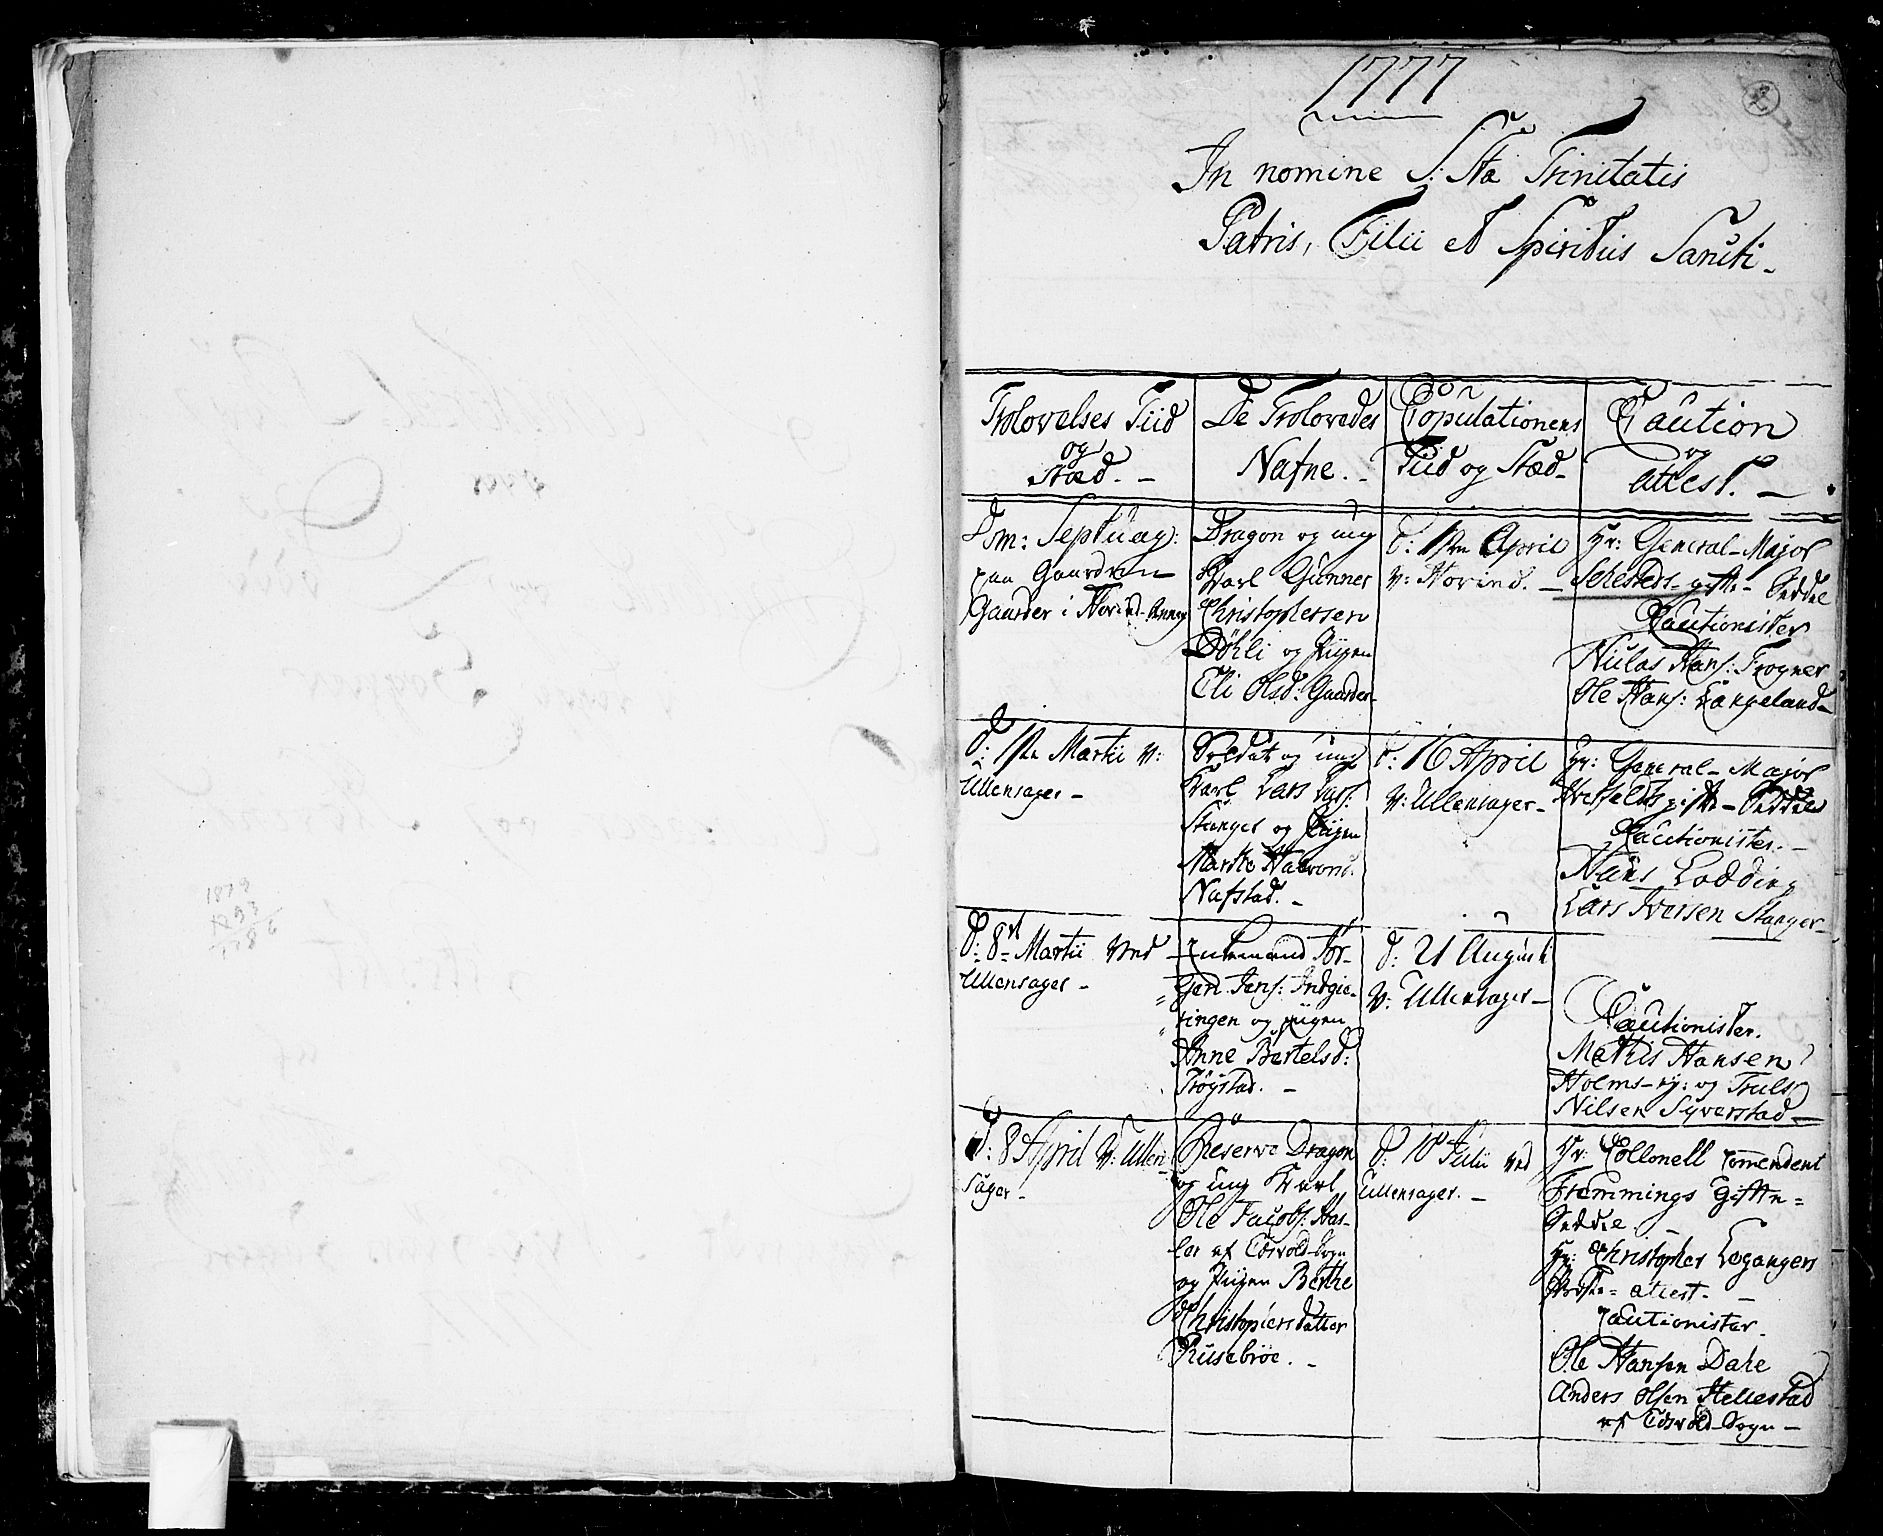 1777
2
In nomine S: Stæ Trinitatis
Patris, Filii et Spiritus Sancti
Trolovelses Tiid
og
Stæd.
De Trolovedes
Nafne.
Copulationens
Tiid og Stæd
Caution
og
attest.
Dom: Septuag:
paa Gaarden
Gaarder i Hovind Annex
Dragon og ung
Karl Gunner
Christophersen
Døhli og Piigen
Eli Olsd: Gaarder
d: 1ste April
v: Hovind.
Hr: General-Major
Schesteds gifte-Seddel
Cautionister
Niclas Hans: Frogner
Ole Hans: Langeland
d: 1ste Martii v:
Ullensager
Soldat og ung
Karl Lars Lars:
Stanger og Piigen
Marthe Halvord:
Nafstad.
d: 16 April
v: Ullensager
Hr: General-Major
gifte-Seddel
Cautionister.
Hans Lodding
Lars Iversen Stanger
d: 8de Martii ved
Ullensager
Enkemand Jør-
gen Jens: Indgie-
ringen og Piigen
Anne Bertelsd:
Trøgstad.
d: 21 August
v: Ullensager
Cautionister.
Mathis Hansen
Holms-ey: og Truls
Nilsen Syverstad
d: 8 April v: Ullen-
sager
Reserve Dragon
og ung Karl
Ole Jacobs: Has-
ler af Edsvold-Sogn
og Piigen Berthe
Christophersdatter
Rusebrøe.
d: 10 Julii ved
Ullensager.
Hr: Collonell Commendent
Fremmings Gifte-
Seddel.
Hr: Christopher Leganger
attest
Cautionister.
Ole Hansen Dahl
Anders Olsen Hellestad
af Edsvold-Sogn
1879